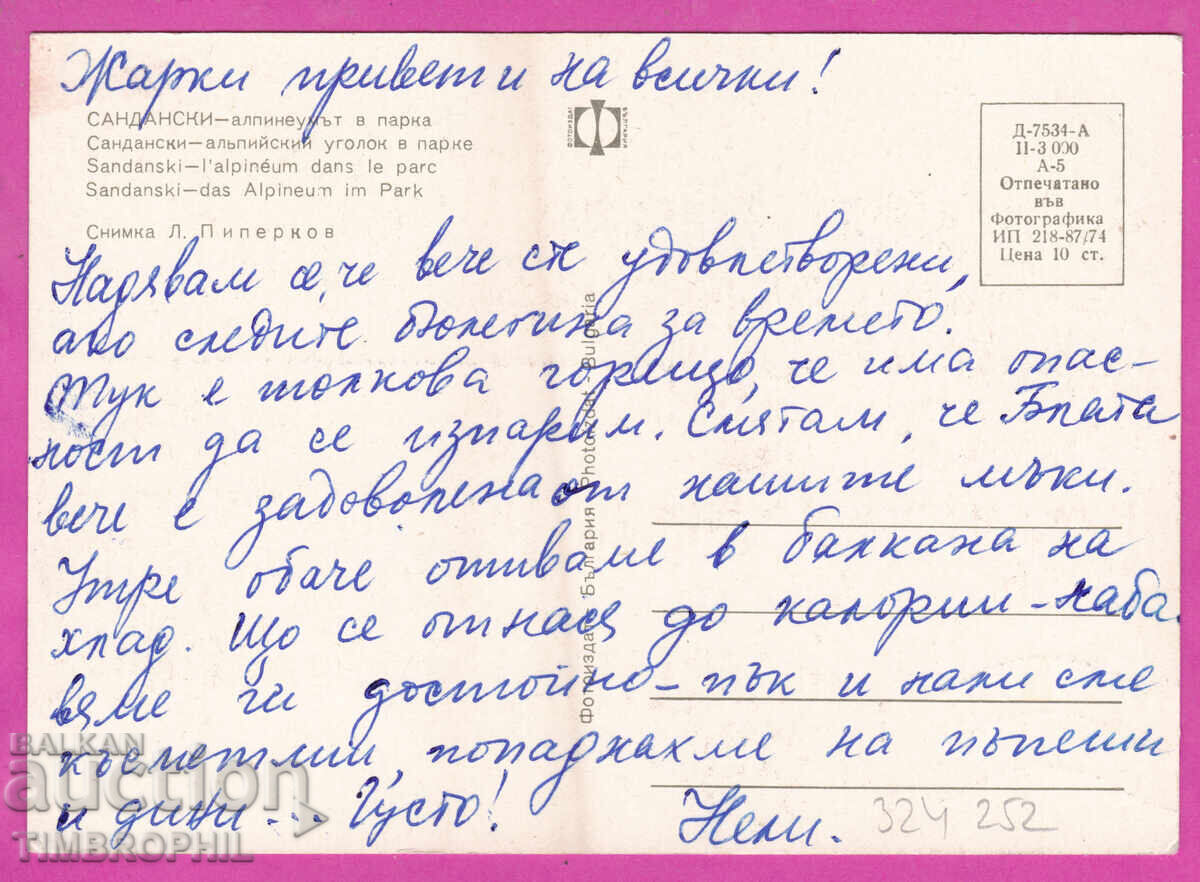 Жарки привети на всички!
САНДАНСКИ—алпинеумът в парка
Сандански—альпийский уголок в парке
Sandanski—l'alpinéum dans le parc
Sandanski—das Alpineum im Park
Снимка Л. Пиперков
ФОТОИЗДАТ БЪЛГАРИЯ
Д-7534-А
II-3 000
А-5
Отпечатано
във
Фотографика
ИП 218-87/74
Цена 10 ст.
Надявам се, че вече сте удовлетворени,
ако следите бюлетина за времето.
Тук е толкова горещо, че има опас-
ност да се изпарим. Смятам, че Блата
вече е задоволена от нашите мъки.
Утре обаче отиваме в балкана на
хлад. Що се отнася до калории - наба
вяме ги достойно - пък и нали сме
късметлии, попаднахме на пъпеши
и дини... Густо!
Нели.
324 252
Фотоиздат България Photoizdat Bulgaria
BALKAN
auction
TIMBROPHIL